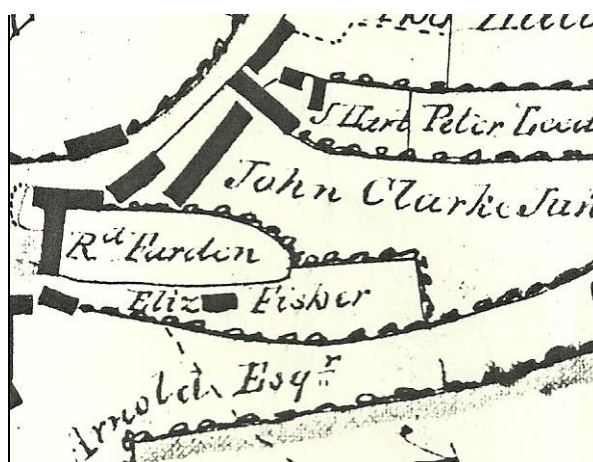 J Hart Peter Leed
John Clarke Jun
Rd Fardon
Eliz Fisher
Arnold Esqr